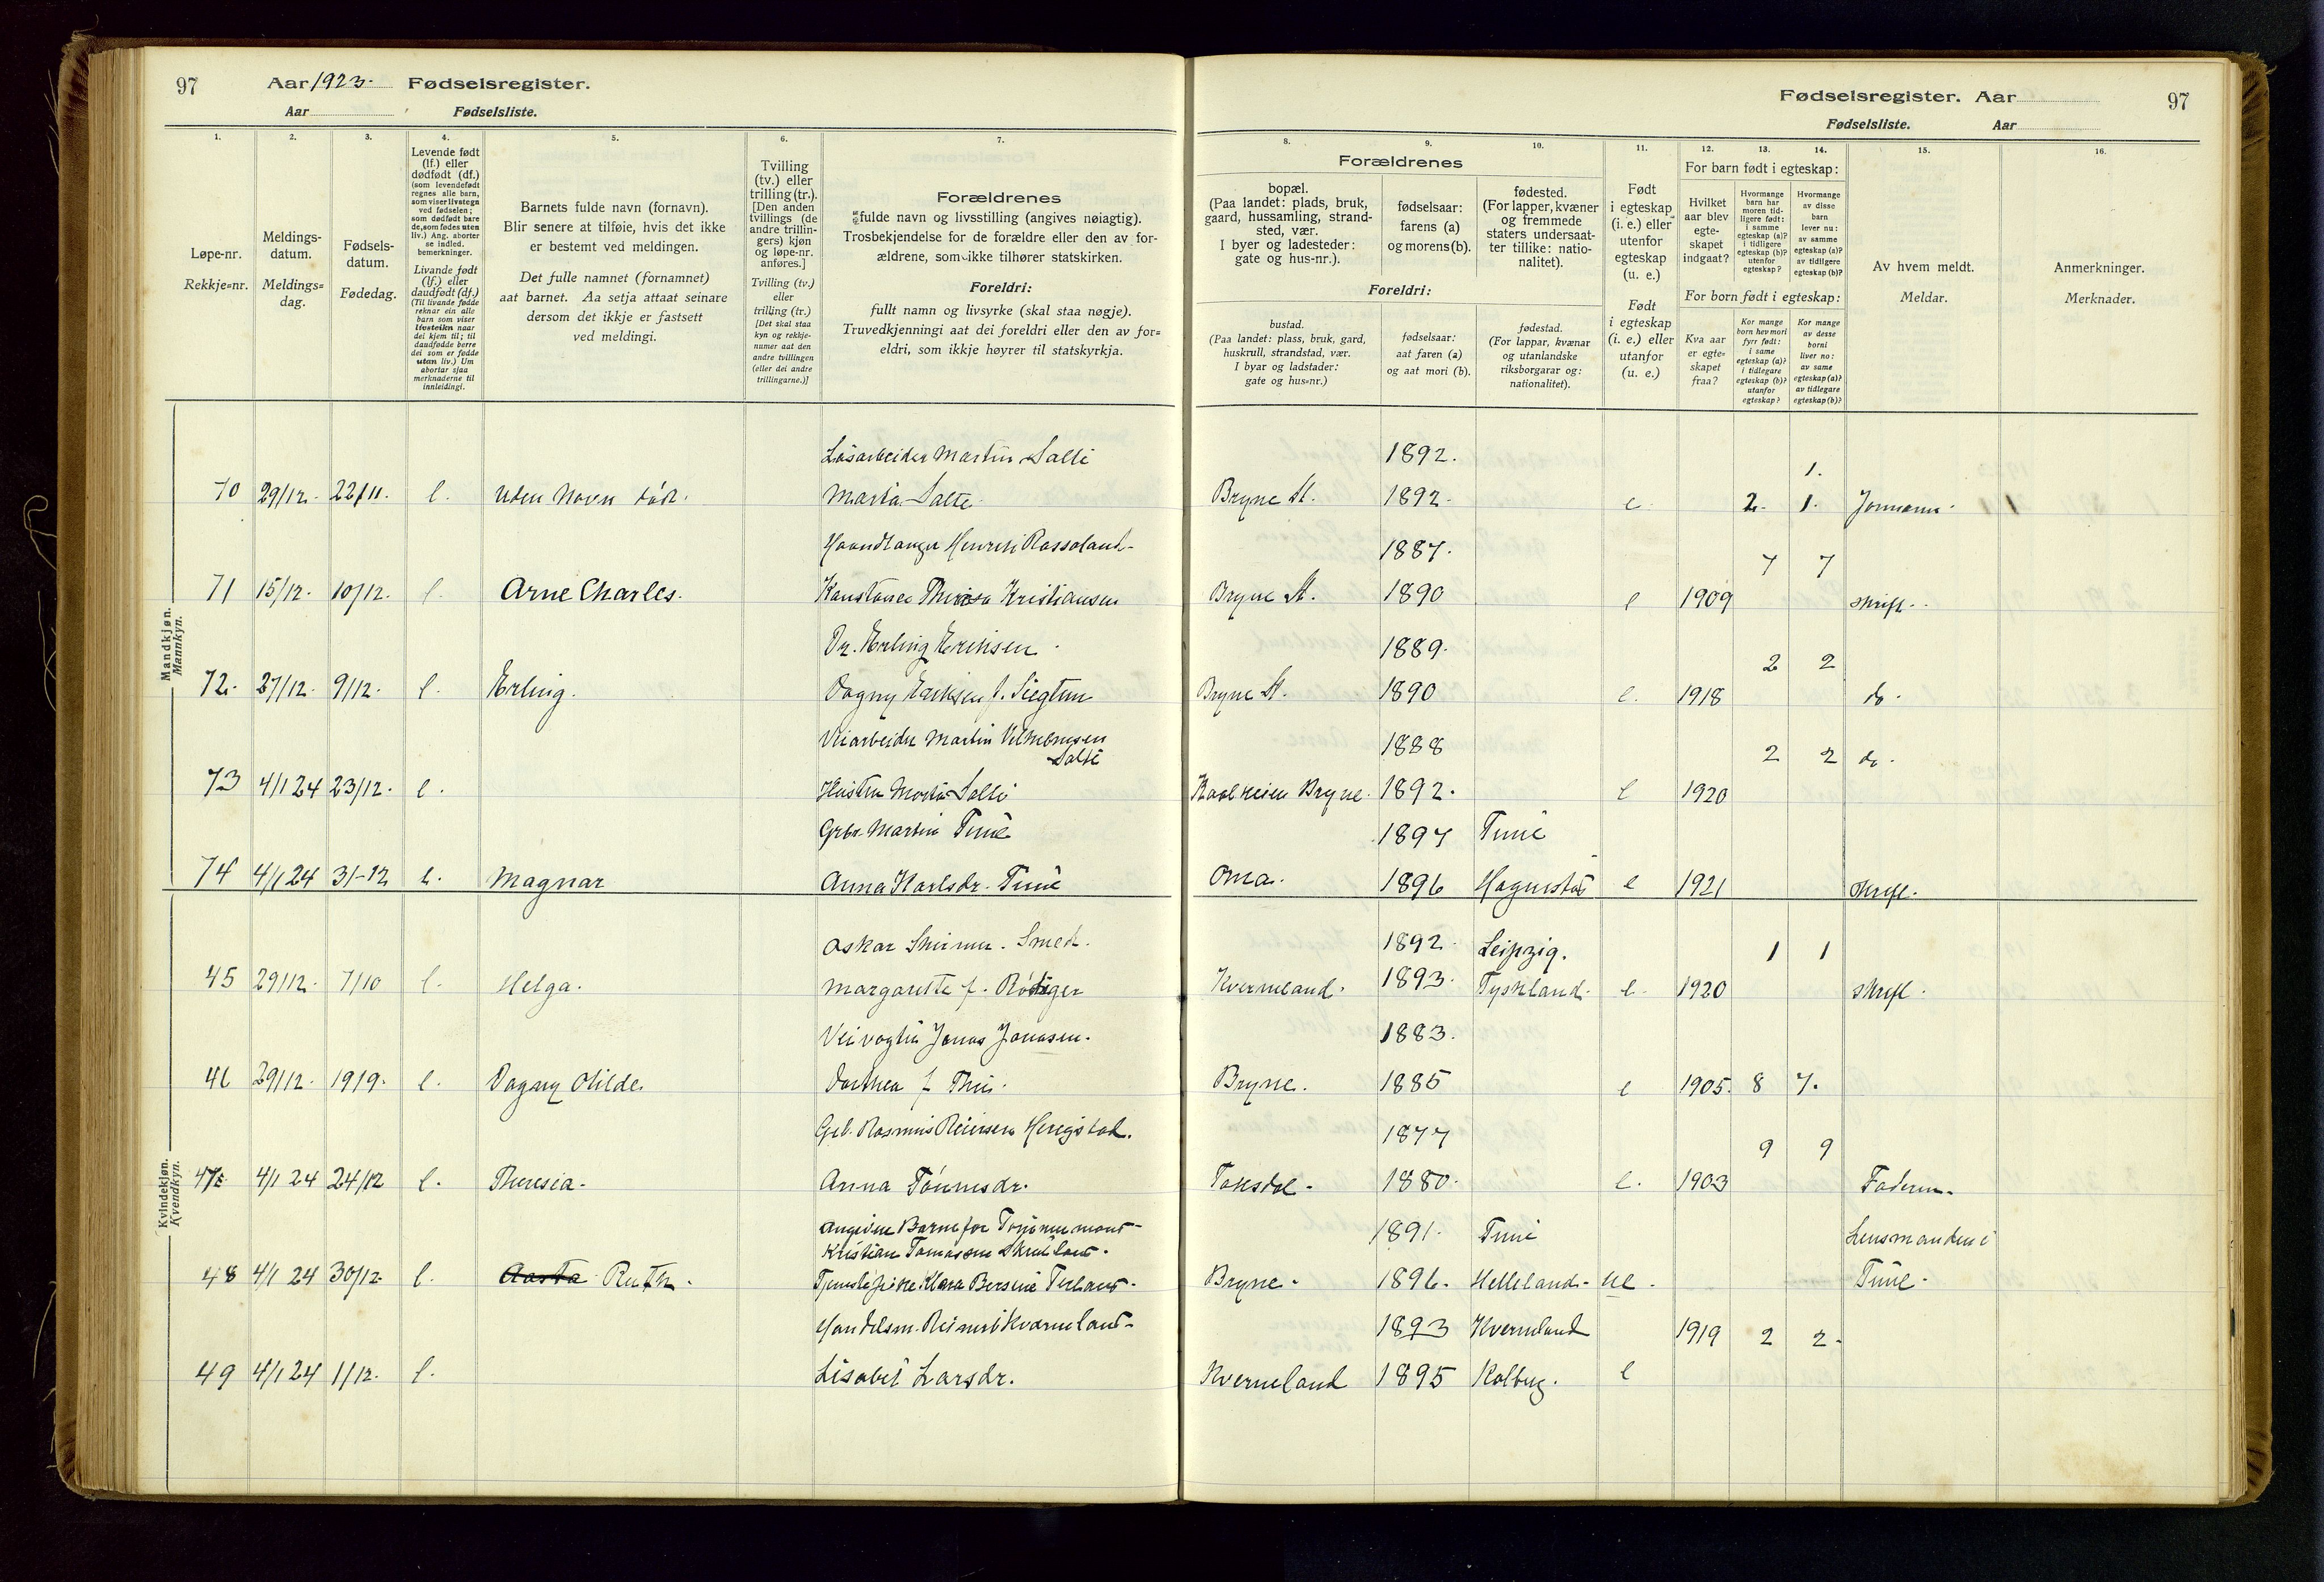 97 Aar 1923. Fødselsregister.
Aar Fødselsliste.
Fødselsregister. Aar 97
Fødselsliste. Aar
1. 2. 3. 4. 5. 6. 7. 8. 9. 10. 11. 12. 13. 14. 15. 16.
Løpe-nr.
Rekkje=nr.
Meldings-
datum.
Meldings=
dag.
Fødsels-
datum.
Fødedag.
Levende født
(lf.) eller
dødfødt (df.)
(som levendefødt
regnes alle barn,
som viser livstegn
ved fødselen;
som dødfødt bare
de, som fødes uten
liv.) Ang. aborter
se indled.
bemerkninger.
Livande født
(lf.) eller
daudfødt (df.)
(Til livande fødde
reknar ein alle
barn som viser
livsteikn naar
dei kjem til; til
daudfødde berre
dei som er fødde
utan liv.) Um
abortar sjaa
merknaderne til
innleidingi.
Barnets fulde navn (fornavn).
Blir senere at tilføie, hvis det ikke
er bestemt ved meldingen.
Det fulle namnet (fornamnet)
aat barnet. Aa setja attaat seinare
dersom det ikkje er fastsett
ved meldingi.
Tvilling
(tv.) eller
trilling (tr.).
[Den anden
tvillings (de
andre trillin-
gers) kjøn
og løpe-nr.
anføres.]
Tvilling (tv.)
eller
trilling (tr.)
[Det skal staa
kyn og rekkje-
numer aat den
andre tvillingen
(eller dei andre
trillingarne.)]
Forældrenes
fulde navn og livsstilling (angives nøiagtig).
Trosbekjendelse for de forældre eller den av for-
ældrene, som ikke tilhører statskirken.
Foreldri:
fullt namn og livsyrke (skal staa nøgje).
Truvedkjenningi aat dei foreldri eller den av for=
eldri, som ikkje høyrer til statskyrkja.
Forældrenes
bopæl.
(Paa landet: plads, bruk,
gaard, hussamling, strand-
sted, vær.
I byer og ladesteder:
gate og hus-nr.).
Foreldri:
bustad.
(Paa landet: plass, bruk, gard,
huskrull, strandstad, vær.
I byar og ladstader:
gate og hus=nr.)
fødselsaar:
farens (a)
og morens (b).
fødselsaar:
aat faren (a)
og aat mori (b).
fødested.
(For lapper, kvæner
og fremmede
staters undersaat-
ter tillike: natio-
nalitet).
fødestad.
(For lappar, kvænar
og utanlandske
riksborgarar og:
nationalitet).
Født
i egteskap
(i. e.) eller
utenfor
egteskap
(u. e.)
Født
i egteskap
(i. e.) eller
utanfor
(u. e.)
For barn født i egteskap:
Hvilket
aar blev
egte-
skapet
indgaat?
Hvormange
barn har
moren tid-
ligere født:
i samme
egteskap (a)?
i tidligere
egteskap (b)?
utenfor
egteskap?
Hvormange
av disse
barn
lever nu:
av samme
egteskap (a)?
av tidligere
egteskap (b)?
For born født i egteskap:
Kva aar
er egte=
skapet
fraa?
Kor mange
born hev mori
fyrr født:
i same
egteskap (a)?
i tidlegare
egteskap (b)?
utanfor
egteskap?
Kor mange
av desse
borni
liver no:
av same
egteskap (a)?
av tidlegare
egteskap (b)?
Av hvem meldt.
Meldar.
Anmerkninger.
Merknader.
Mandkjøn.
Mannkyn.
Løsarbeider Martin Salte 1892. 1.
70 29/12. 22/11. l. uden Navn død. Marta Salte Bryne St. 1892. e 2. 1. Jormoren.
Haandlanger Henrik Rossoland 1887. 7 7
71 15/12. 10/12. l. Arne Charles. Konstance Theresa Kristiansen Bryne St. 1890 e 1909 skriftl.
Dr. Erling Eriksen 1889. 2 2
72. 27/12. 9/12. l. Erling. Dagny Eriksen f. Siegtun Bryne St. 1890 e. 1918 do.
Veiarbeider Martin Vilhelmsen Salte 1888 2 2 do.
73 4/1 24 23/12. l. Hustru Marta Salte Kaalheien Bryne. 1892. e 1920
Grbr. Martin Time 1897 Time
74 4/1 24 31-12 l. Magnar Anna Karlsdr. Time Oma. 1896 Hognestad e 1921 skriftl.
Kvindekjøn.
Kvendkyn.
Oskar . Smed. 1892. Leipzig. 1 1
45 29/12. 7/10 l. Helga. Margarette f. Rödiger Kverneland. 1893. Tyskland. e. 1920 skriftl.
Veivogter Jonas Jonasen. 1883.
46 29/12. 19/9. l. Dagny Otilde. Dorthea f. Thu. Bryne. 1885 e 1905. 8 7.
Gbr. Rasmus Reiersen Herigstad. 1877 9 9
47 4/1 24 24/12 l. Theresia. Anna Tønnesdr. Taksdal. 1880. e. 1903 Faderen.
Angiven Barnefar
Kristian Tomassen 1891. Time Lensmanden i
48 4/1 24 30/12. l. Aasta Ruth. Tjenestepike Klara Bersine Terland Bryne. 1896. Helleland. ue. Time.
Handelsm. Reinert Kverneland 1893 Kverneland 1919 2 2.
49 4/1 24 1/12. l. Lisabet Larsdr. Kverneland 1895 Kalberg. e